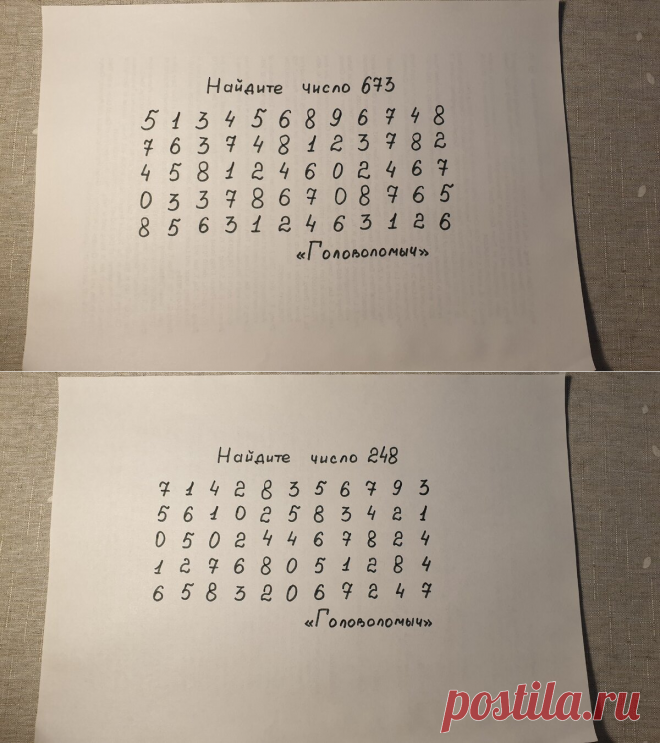 Найдите число 673
5 1 3 4 5 6 8 9 6 7 4 8
7 6 3 7 4 8 1 2 3 7 8 2
4 5 8 1 2 4 6 0 2 4 6 7
0 3 3 7 8 6 7 0 8 7 6 5
8 5 6 3 1 2 4 6 3 1 2 6
«Головоломыч»
Найдите число 248
7 1 4 2 8 3 5 6 7 9 3
5 6 1 0 2 5 8 3 4 2 1
0 5 0 2 4 4 6 7 8 2 4
1 2 7 6 8 0 5 1 2 8 4
6 5 8 3 2 0 6 7 2 4 7
«Головоломыч»
postila.ru